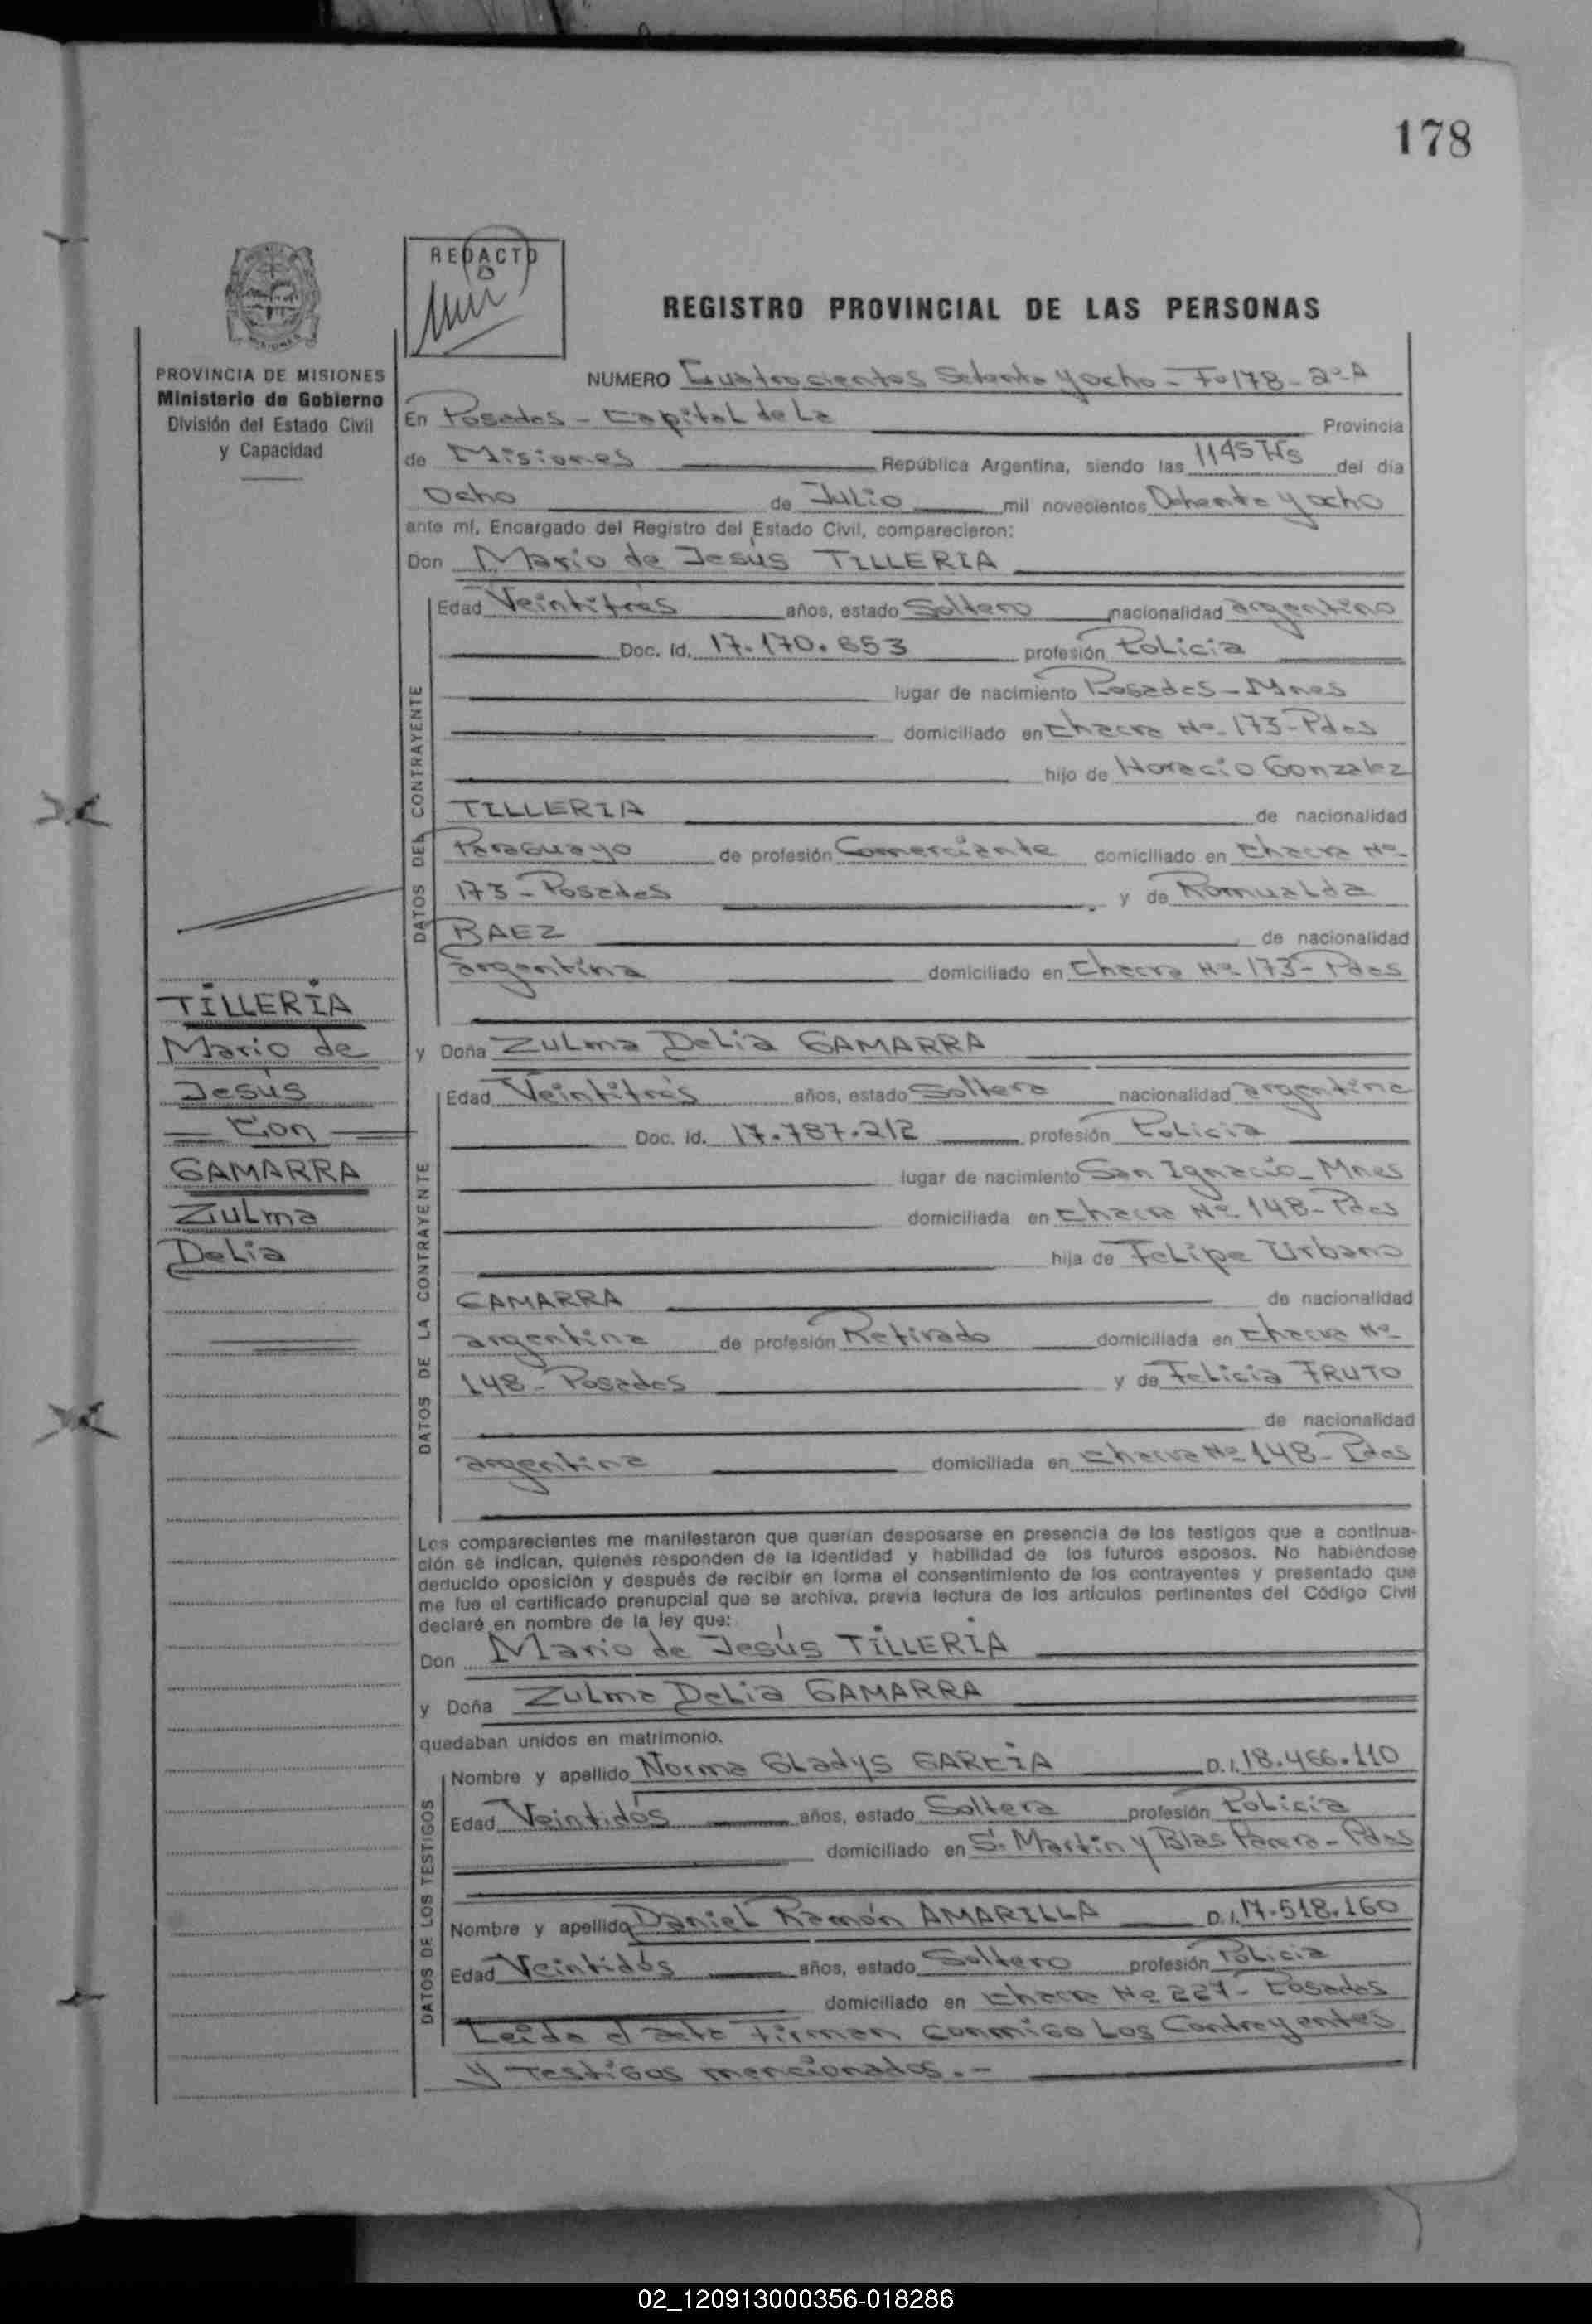 178
REDACTO
REGISTRO PROVINCIAL DE LAS PERSONAS
PROVINCIA DE MISIONES
Ministerio de Gobierno
División del Estado Civil
y Capacidad
NUMERO Cuatrocientos Setenta y ocho - Fº 178 - 2º A
En Posadas - Capital de La Provincia
de Misiones República Argentina, siendo las 1145 Hs del día
Ocho de Julio mil novecientos Ochenta y ocho
ante mí, Encargado del Registro del Estado Civil, comparecieron:
Don Mario de Jesús TILLERIA
DATOS DEL CONTRAYENTE
Edad Veintitrés años, estado Soltero nacionalidad argentino
Doc. Id. 17.170.653 profesión Policia
lugar de nacimiento Posadas - Mnes
domiciliado en Chacra Nº 173 - Pdas
hijo de Horacio Gonzalez
TILLERIA de nacionalidad
Paraguayo de profesión Comerciante domiciliado en Chacra Nº
173 - Posadas y de Romualda
BAEZ de nacionalidad
argentina domiciliado en Chacra Nº 173 - Pdas
TILLERIA
Mario de
Jesús
Con
GAMARRA
Zulma
Delia
y Doña Zulma Delia GAMARRA
DATOS DE LA CONTRAYENTE
Edad Veintitrés años, estado Soltera nacionalidad argentina
Doc. Id. 17.787.212 profesión Policia
lugar de nacimiento San Ignacio - Mnes
domiciliada en Chacra Nº 148 - Pdas
hija de Felipe Urbano
GAMARRA de nacionalidad
argentina de profesión Retirado domiciliada en Chacra Nº
148 - Posadas y de Felicia FRUTO
de nacionalidad
argentina domiciliada en Chacra Nº 148 - Pdas
Los comparecientes me manifestaron que querían desposarse en presencia de los testigos que a continua-
ción se indican, quienes responden de la identidad y habilidad de los futuros esposos. No habiéndose
deducido oposición y después de recibir en forma el consentimiento de los contrayentes y presentado que
me fue el certificado prenupcial que se archiva, previa lectura de los artículos pertinentes del Código Civil
declaré en nombre de la ley que:
Don Mario de Jesús TILLERIA
y Doña Zulma Delia GAMARRA
quedaban unidos en matrimonio.
DATOS DE LOS TESTIGOS
Nombre y apellido Norma Gladys GARCIA D.I. 18.466.110
Edad Veintidós años, estado Soltera profesión Policia
domiciliado en S. Martin y Blas Parera - Pdas
Nombre y apellido Daniel Ramón AMARILLA D.I. 17.518.160
Edad Veintidós años, estado Soltero profesión Policia
domiciliado en Chacra Nº 227 - Posadas
Leida el acta Firman conmigo Los Contrayentes
y Testigos mencionados. -
02_120913000356-018286